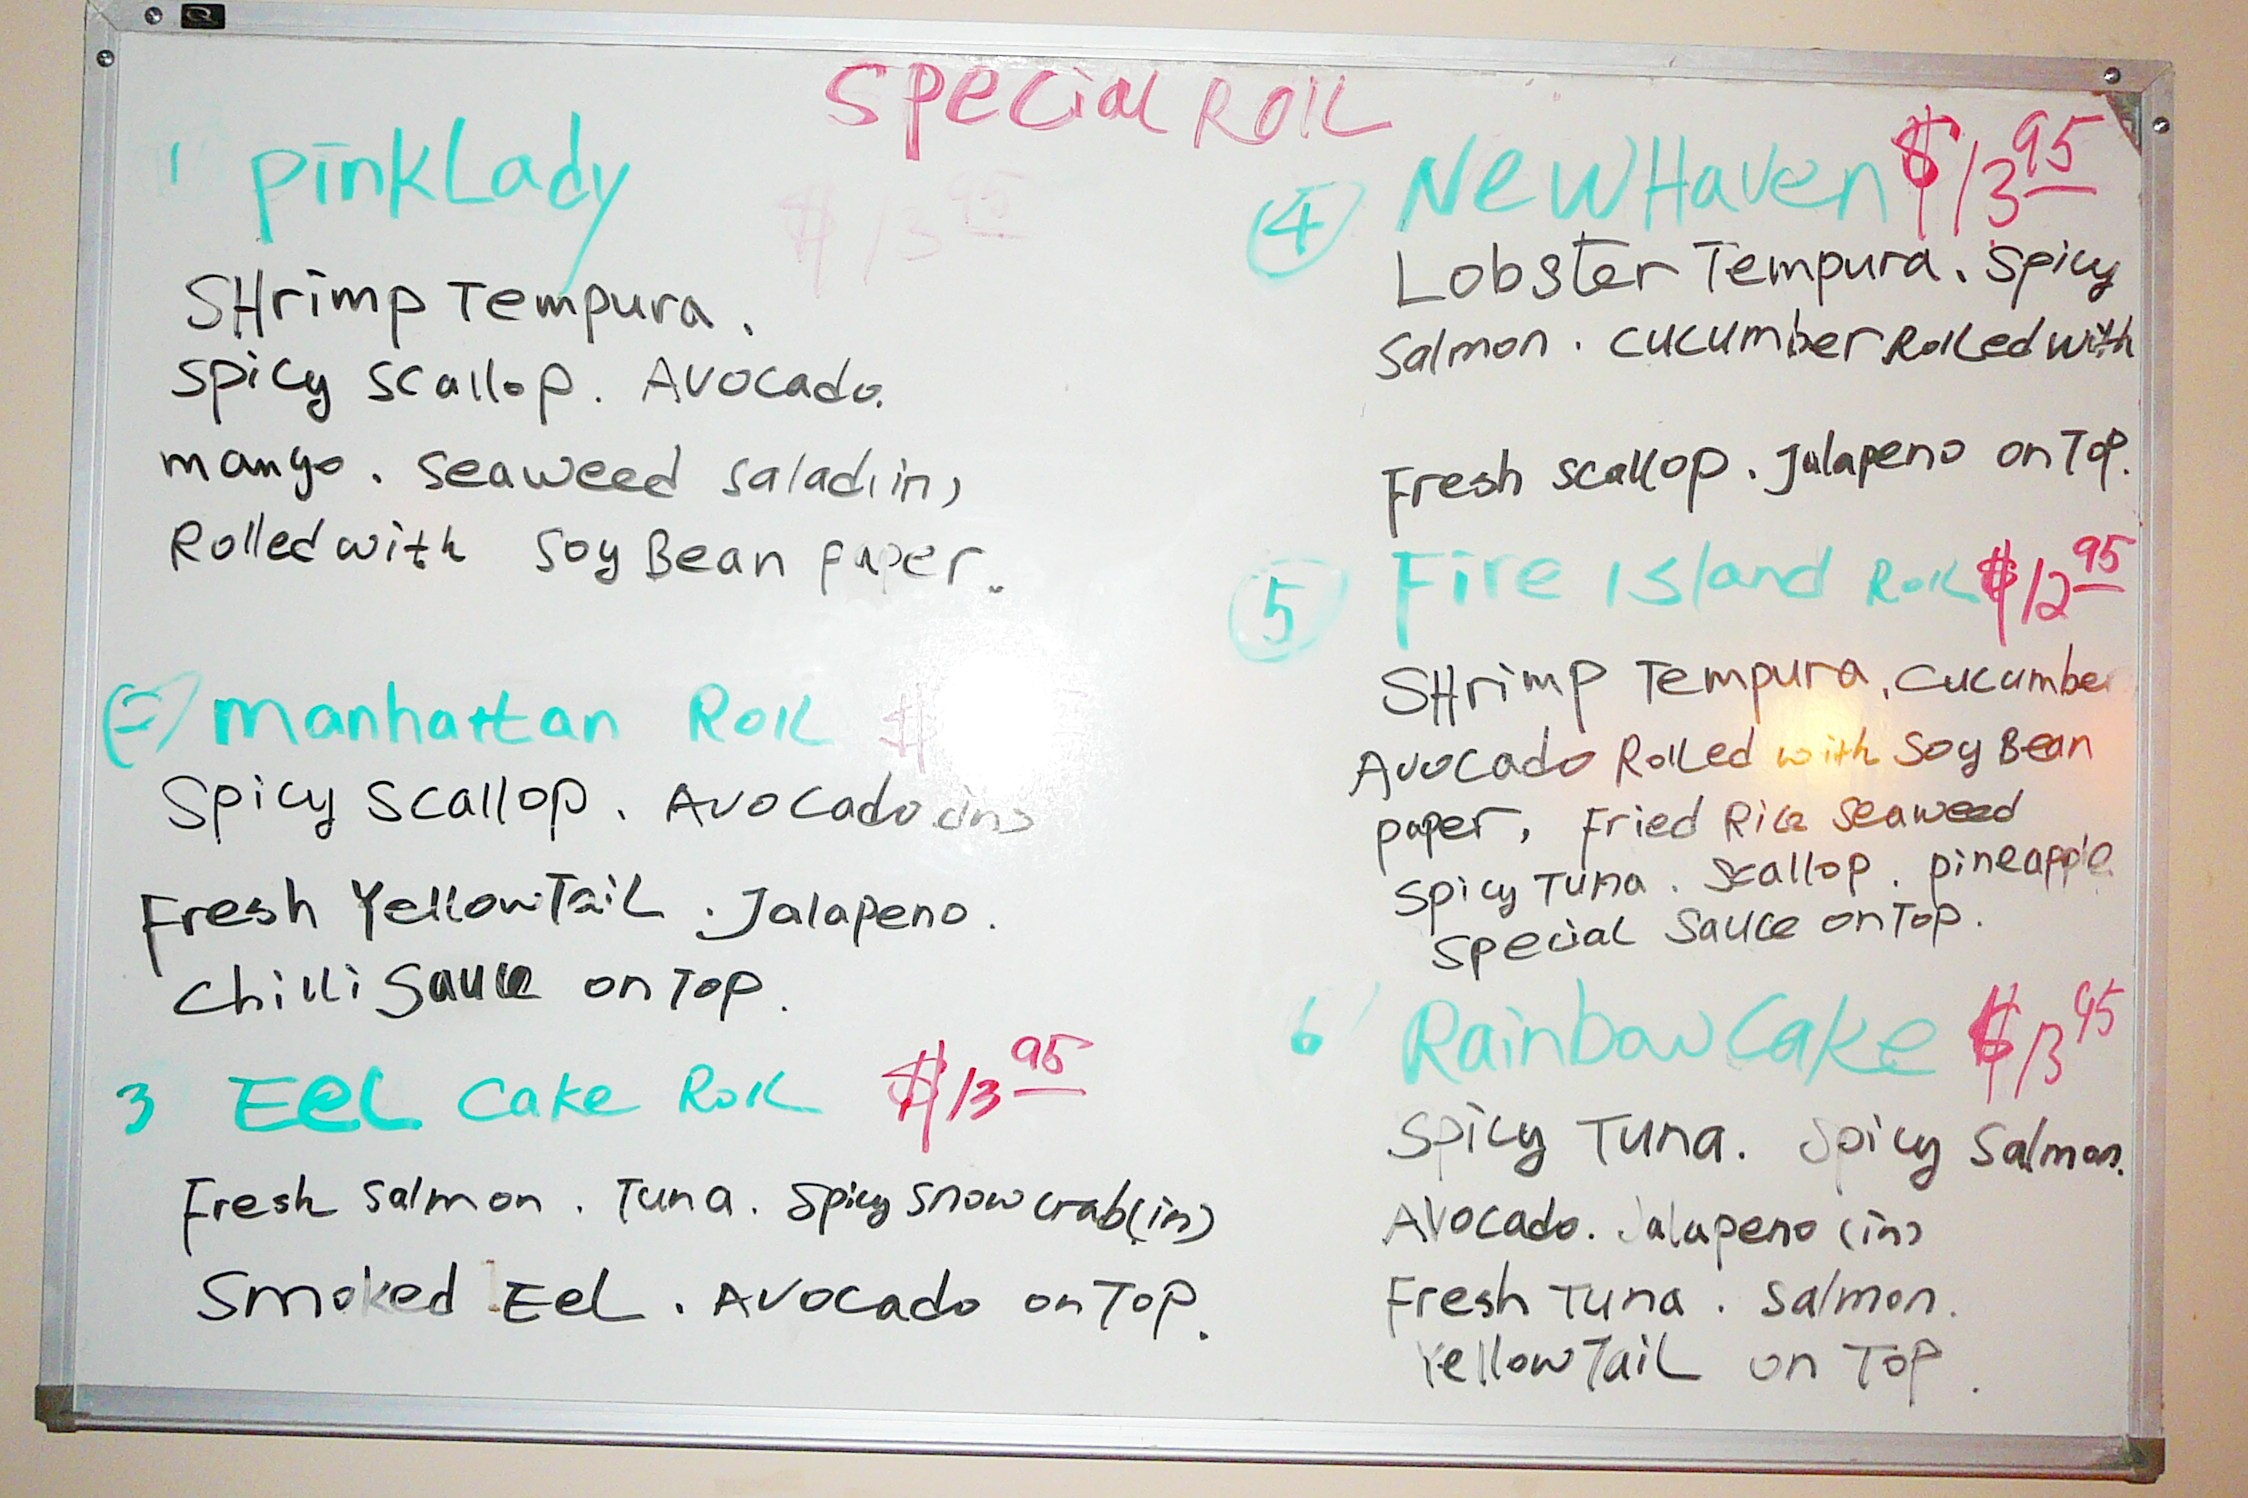 Special Roll
1 Pink Lady
$13.95
Shrimp Tempura.
Spicy scallop. Avocado.
mango. seaweed salad(in)
Rolled with Soy Bean paper.
Manhattan Roll $
Spicy scallop. Avocado (in)
Fresh Yellow Tail. Jalapeno.
Chilli Sauce on Top.
3 Eel Cake Roll $13.95
Fresh salmon. Tuna. Spicy snow crab(in)
Smoked Eel. Avocado on Top.
4 New Haven $13.95
Lobster Tempura. Spicy
Salmon. cucumber Rolled with
Fresh scallop. Jalapeno on Top.
5 Fire Island Roll $12.95
Shrimp Tempura. Cucumber
Avocado Rolled with Soy Bean
paper, Fried Rice Seaweed
Spicy Tuna. Scallop. pineapple
Special Sauce on Top.
6 Rainbow Cake $13.95
Spicy Tuna. Spicy Salmon.
Avocado. Jalapeno (in)
Fresh Tuna. Salmon.
Yellow Tail on Top.